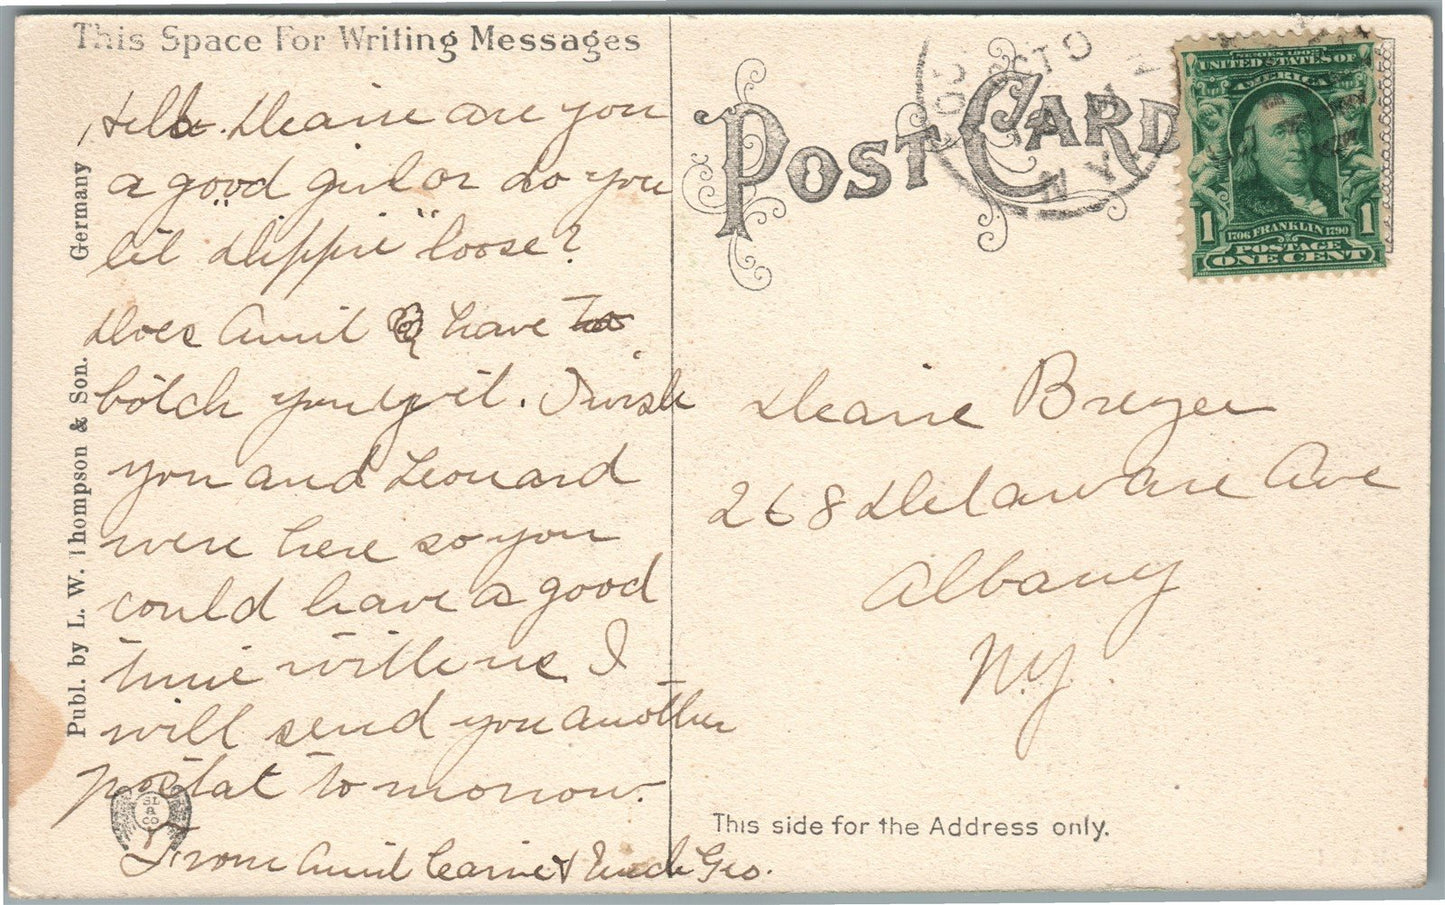 This Space For Writing Messages
Hello Dearie are you
a good girl or do you
let "dippie" loose?
Does Aunt have to
botch you yet. I wish
you and Leonard
were here so you
could have a good
time with us I
will send you another
postal to morrow.
From Aunt Carrie & Uncle Geo.
Publ. by L. W. Thompson & Son. Germany
SL
&
CO
POST CARD
N.Y.
SERIES 1902
UNITED STATES OF
AMERICA
1 1
1706 FRANKLIN 1790
POSTAGE
ONE CENT
Dearie Breyer
268 Delaware Ave
Albany
N.Y.
This side for the Address only.